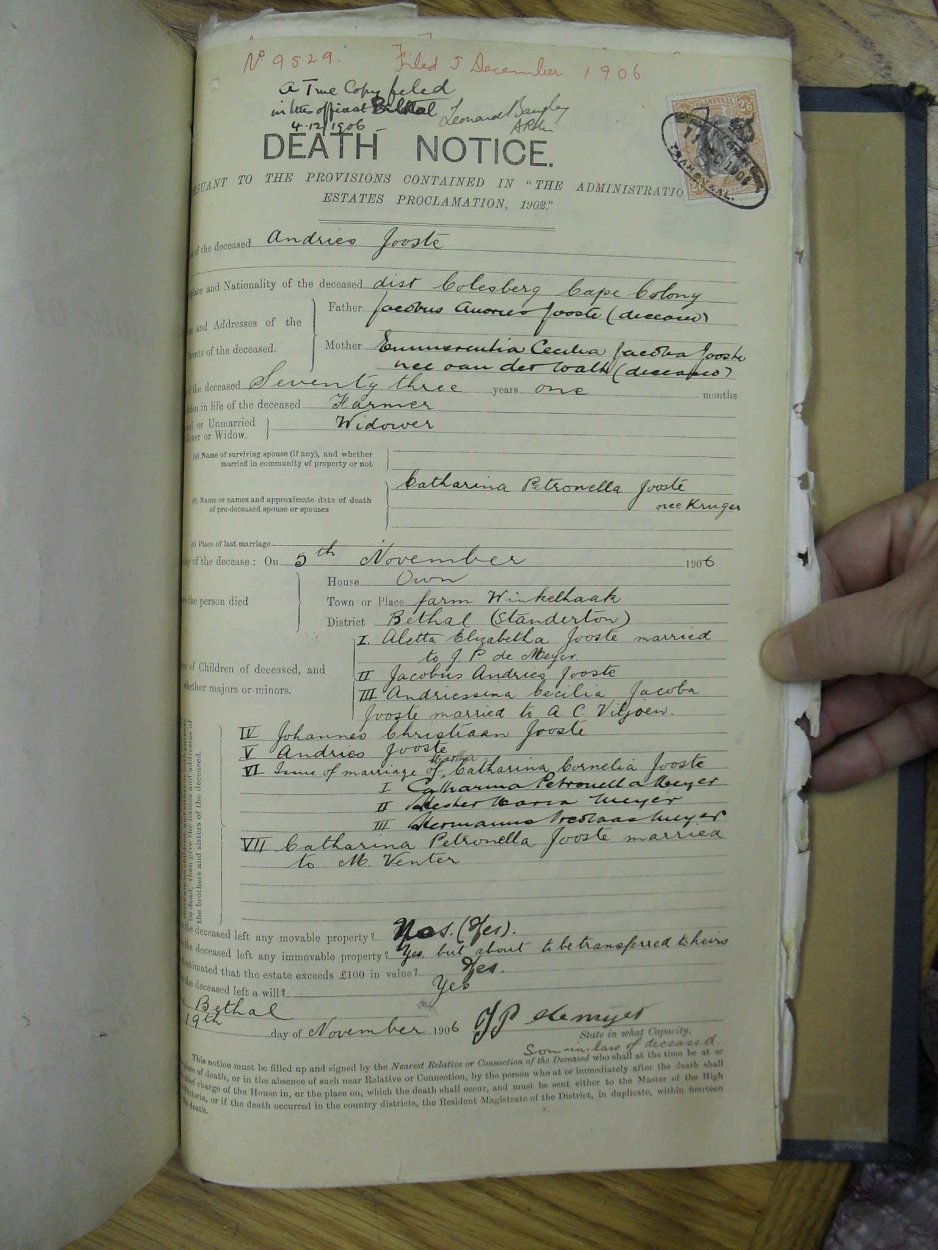 Nº 9529. Filed 5 December 1906
A True Copy filed
in the office at Bethal Leonard
4.12/1906
DEATH NOTICE.
SUANT TO THE PROVISIONS CONTAINED IN "THE ADMINISTRATIO
ESTATES PROCLAMATION, 1902."
of the deceased Andries Jooste
place and Nationality of the deceased dist Colesberg Cape Colony
Father Jacobus Andries Jooste (deceased)
and Addresses of the
nts of the deceased.
Mother Emmerentia Cecilia Jacoba Jooste
nee van der Walt (deceased)
of the deceased Seventy three years one months
ition in life of the deceased Farmer
ied or Unmarried
ower or Widow. Widower
(a) Name of surviving spouse (if any), and whether
married in community of property or not
Catharina Petronella Jooste
(b) Name or names and approximate date of death
of pre-deceased spouse or spouses
nee Kruger
(c) Place of last marriage
ay of the decease: On 5th November 1906
House Own
re the person died
Town or Place farm Winkelhaak
District Bethal (Standerton)
I. Aletta Elizabetha Jooste married
to J P de Meyer
es of Children of deceased, and
whether majors or minors.
II Jacobus Andries Jooste
III Andriessina Cecilia Jacoba
Jooste married to A C Viljoen.
IV Johannes Christiaan Jooste
V Andries Jooste
VI Issue of marriage of Martha Catharina Cornelia Jooste
I Catharina Petronella Meyer
II Hester Maria Meyer
III Hermanus Nicolaas Meyer
VII Catharina Petronella Jooste married
to M. Venter
be dead, then give the names and addresses of
the brothers and sisters of the deceased.
the deceased left any movable property? Yes. (Yes).
the deceased left any immovable property? Yes but about to be transferred to heirs
estimated that the estate exceeds £100 in value? Yes.
the deceased left a will? Yes
Bethal
19th day of November 1906 J P de Meyer
State in what Capacity.
Son-in-law of deceased
This notice must be filled up and signed by the Nearest Relative or Connection of the Deceased who shall at the time be at or
place of death, or in the absence of such near Relative or Connection, by the person who at or immediately after the death shall
charge of the House in, or the place on, which the death shall occur, and must be sent either to the Master of the High
Pretoria, or if the death occurred in the country districts, the Resident Magistrate of the District, in duplicate, within fourteen
death.